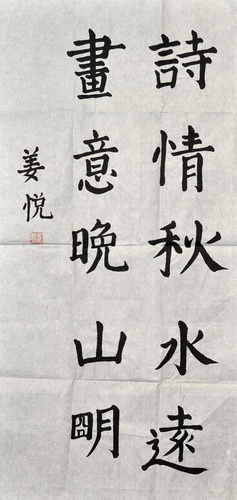 詩情秋水遠
畫意晩山明
姜悦